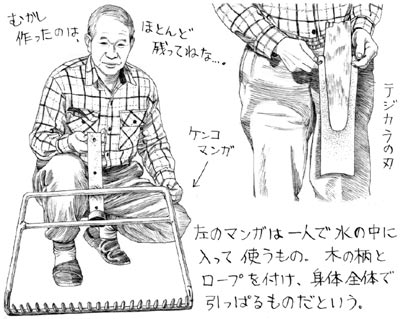 むかし
作ったのは、
ほとんど
残ってねな…。
ケンコ
マンガ
テジカラの刃
左のマンガは一人で水の中に
入って使うもの。木の柄と
ロープを付け、身体全体で
引っぱるものだという。